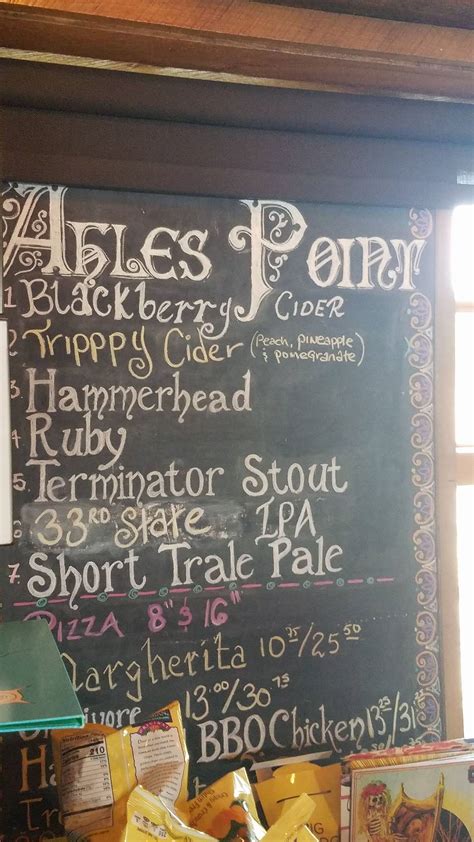 Ahles Point
1. Blackberry Cider
2. Tripppy Cider (Peach, Pineapple
& Pomegranate)
3. Hammerhead
4. Ruby
5. Terminator Stout
6 33RD State IPA
7. Short Trale Pale
Pizza 8" & 16"
Margherita 10 25/25 50
13 00/30 75
nivore
BBQ Chicken 13 25/31
Ha
Tr
210